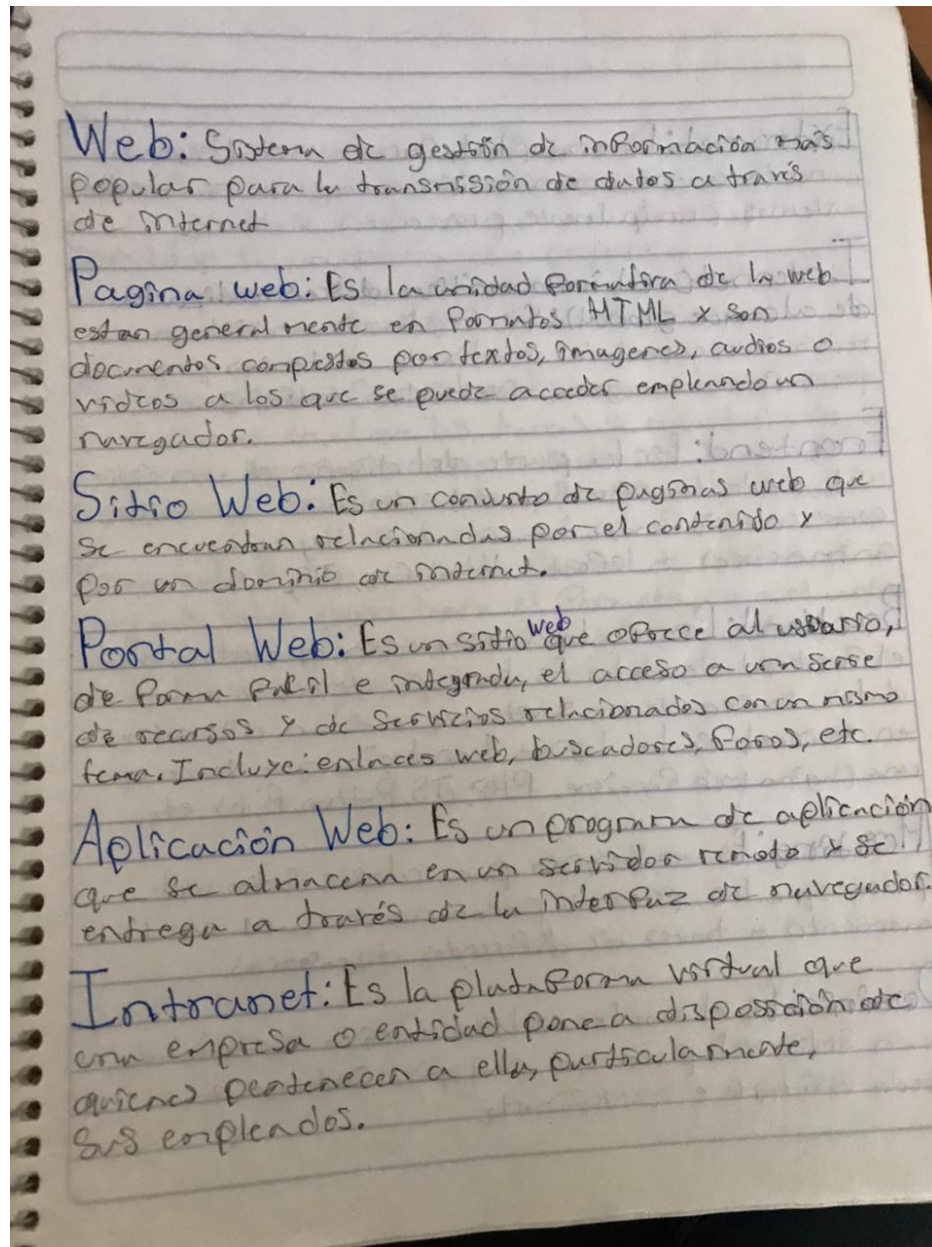 Web: Sistema de gestión de información más
popular para la transmisión de datos a través
de internet
Pagina web: Es la unidad formativa de la web
estan generalmente en formatos HTML y son
documentos compestos por textos, imagenes, audios o
videos a los que se puede acceder empleando un
navegador.
Sitio Web: Es un conjunto de paginas web que
se encuentran relacionadas por el contenido y
por un dominio de internet.
Portal Web: Es un sitio web que ofrece al usuario,
de forma fácil e integrada, el acceso a una serie
de recursos y de servicios relacionados con un mismo
tema. Incluye: enlaces web, buscadores, foros, etc.
Aplicación Web: Es un programa de aplicación
que se almacena en un servidor remoto y se
entrega a través de la interfaz de navegador.
Intranet: Es la plataforma virtual que
una empresa o entidad pone a disposición de
quienes pertenecen a ella, particularmente,
sus empleados.